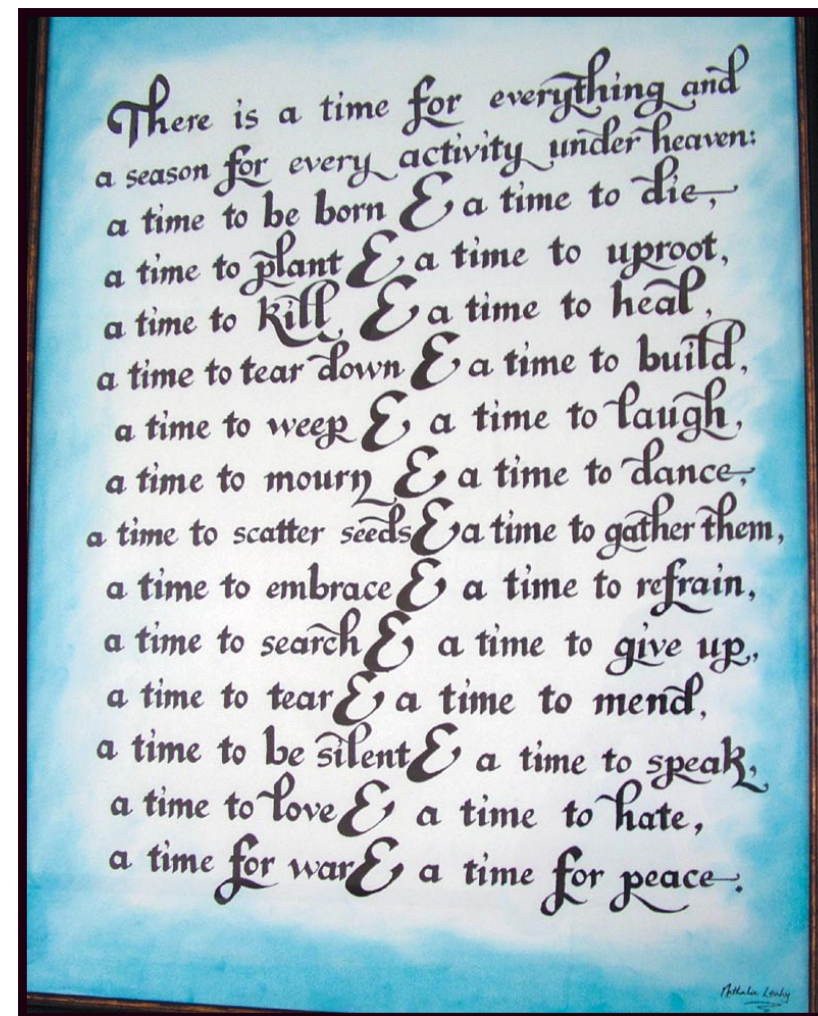 There is a time for everything and
a season for every activity under heaven:
a time to be born & a time to die,
a time to plant & a time to uproot,
a time to kill & a time to heal,
a time to tear down & a time to build,
a time to weep & a time to laugh,
a time to mourn & a time to dance,
a time to scatter seeds & a time to gather them,
a time to embrace & a time to refrain,
a time to search & a time to give up,
a time to tear & a time to mend,
a time to be silent & a time to speak,
a time to love & a time to hate,
a time for war & a time for peace.
Nathalie Leahy